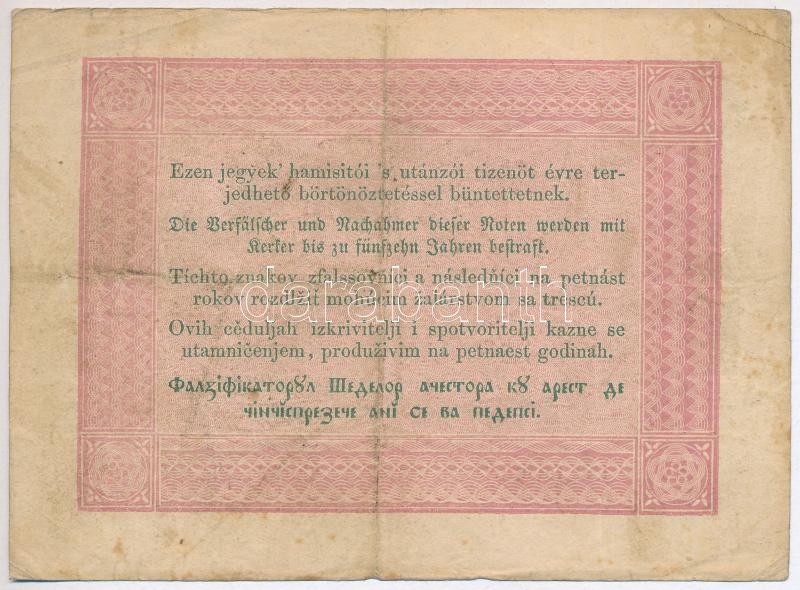 Ezen jegyek' hamisitói 's utánzói tizenöt évre ter-
jedhető börtönöztetéssel büntettetnek.
Die Verfälscher und Nachahmer dieser Noten werden mit
Kerker bis zu fünfzehn Jahren bestraft.
Tíchto znakov zfalssovníci a následňíci na petnást
rokov rozdlžit mohúcim žalárstvom sa trescú.
Ovih cěduljah izkrivitelji i spotvoritelji kazne se
utamničenjem, produživim na petnaest godinah.
Фалзіфікаторꙋл Шеделор ачестора кꙋ арест де
чінчіспрезече ані се ва педепсі.
darabanth